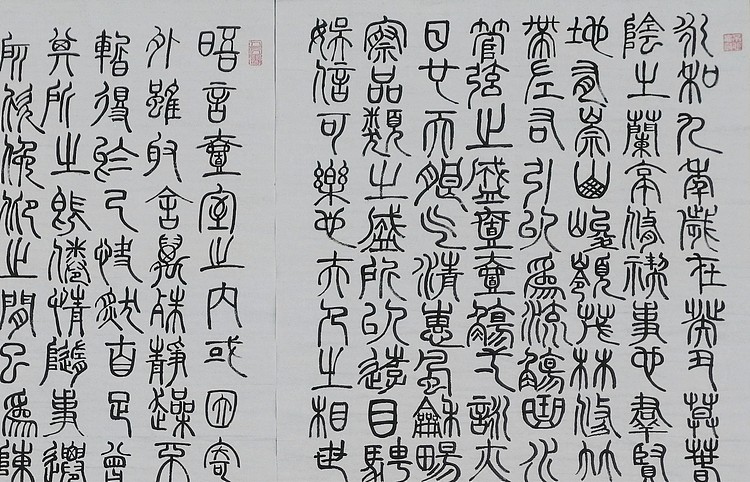 永和九年歲在癸丑莫春
陰之蘭亭脩禊事也羣賢
地有崇山峻領茂林脩竹
帶左右引以為流觴曲水
管弦之盛壹壹觴弌詠亦
日也天朗气清惠風龢暢
察品類之盛所以遊目騁
娛信可樂也夫人之相與
晤言壹室之內或因寄
外雖取舍萬殊靜躁不
暫得於己快然自足曾
其所之既倦情隨事遷
所欣俛仰之間以為陳